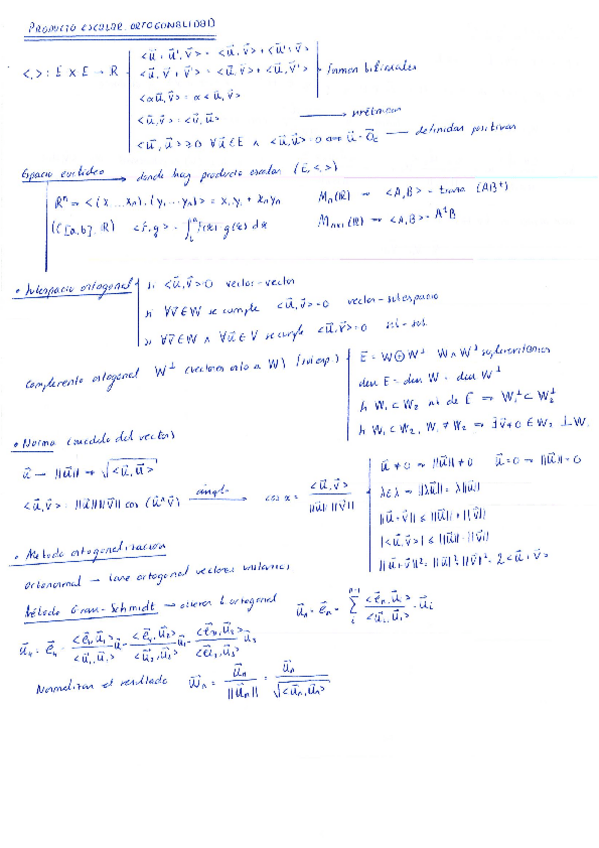 PRODUCTO ESCALAR. ORTOGONALIDAD
<,> : E × E → R
<u⃗ + u⃗', v⃗> = <u⃗, v⃗> + <u⃗', v⃗>
<u⃗, v⃗ + v⃗'> = <u⃗, v⃗> + <u⃗, v⃗'>
formas bilineales
<αu⃗, v⃗> = α<u⃗, v⃗>
<u⃗, v⃗> = <v⃗, u⃗> → simétricas
<u⃗, u⃗> ≥ 0 ∀u⃗ ∈ E ∧ <u⃗, u⃗> = 0 ⟺ u⃗ = 0⃗_E — definidas positivas
Espacio euclídeo → donde hay producto escalar (E, <,>)
Rⁿ → <(x₁ ... xₙ), (y₁ ... yₙ)> = x₁y₁ + xₙyₙ
Mₙ(R) → <A, B> = traza (ABᵗ)
(C[a,b], R) <f, g> = ∫ f(x)·g(x) dx
Mₙₓ₁(R) → <A, B> = AᵗB
• Subespacio ortogonal
si <u⃗, v⃗> = 0 vector-vector
si ∀v⃗ ∈ W se cumple <u⃗, v⃗> = 0 vector-subespacio
si ∀v⃗ ∈ W ∧ ∀u⃗ ∈ V se cumple <u⃗, v⃗> = 0 sub-sub.
Complemento ortogonal W⊥ (vectores orto a W) (subesp.)
E = W ⊕ W⊥ W ∧ W⊥ suplementarios
dim E = dim W + dim W⊥
si W₁ ⊂ W₂ de E ⇒ W₁⊥ ⊂ W₂⊥
si W₁ ⊂ W₂, W₁ ≠ W₂ ⇒ ∃v⃗ ≠ 0 ∈ W₂ ⊥ W₁
• Norma (módulo del vector)
u⃗ → ||u⃗|| → √<u⃗, u⃗>
<u⃗, v⃗> = ||u⃗|| ||v⃗|| cos (u⃗^v⃗) → ángulo cos α = <u⃗, v⃗> / ||u⃗|| ||v⃗||
u⃗ ≠ 0 → ||u⃗|| ≠ 0 u⃗ = 0 → ||u⃗|| = 0
||λu⃗|| = λ||u⃗||
||u⃗ + v⃗|| ≤ ||u⃗|| + ||v⃗||
|<u⃗, v⃗>| ≤ ||u⃗|| · ||v⃗||
||u⃗ + v⃗||² = ||u⃗||² + ||v⃗||² + 2<u⃗, v⃗>
• Método ortogonalización
Ortonormal → base ortogonal vectores unitarios
Método Gram-Schmidt → obtener b ortogonal
u⃗ₙ = e⃗ₙ - Σ <e⃗ₙ, u⃗ᵢ> / <u⃗ᵢ, u⃗ᵢ> · u⃗ᵢ
u⃗₄ = e⃗₄ - <e⃗₄, u⃗₁> / <u⃗₁, u⃗₁> u⃗₁ - <e⃗₄, u⃗₂> / <u⃗₂, u⃗₂> u⃗₂ - <e⃗₄, u⃗₃> / <u⃗₃, u⃗₃> u⃗₃
Normalizar el resultado w⃗ₙ = u⃗ₙ / ||u⃗ₙ|| = u⃗ₙ / √<u⃗ₙ, u⃗ₙ>